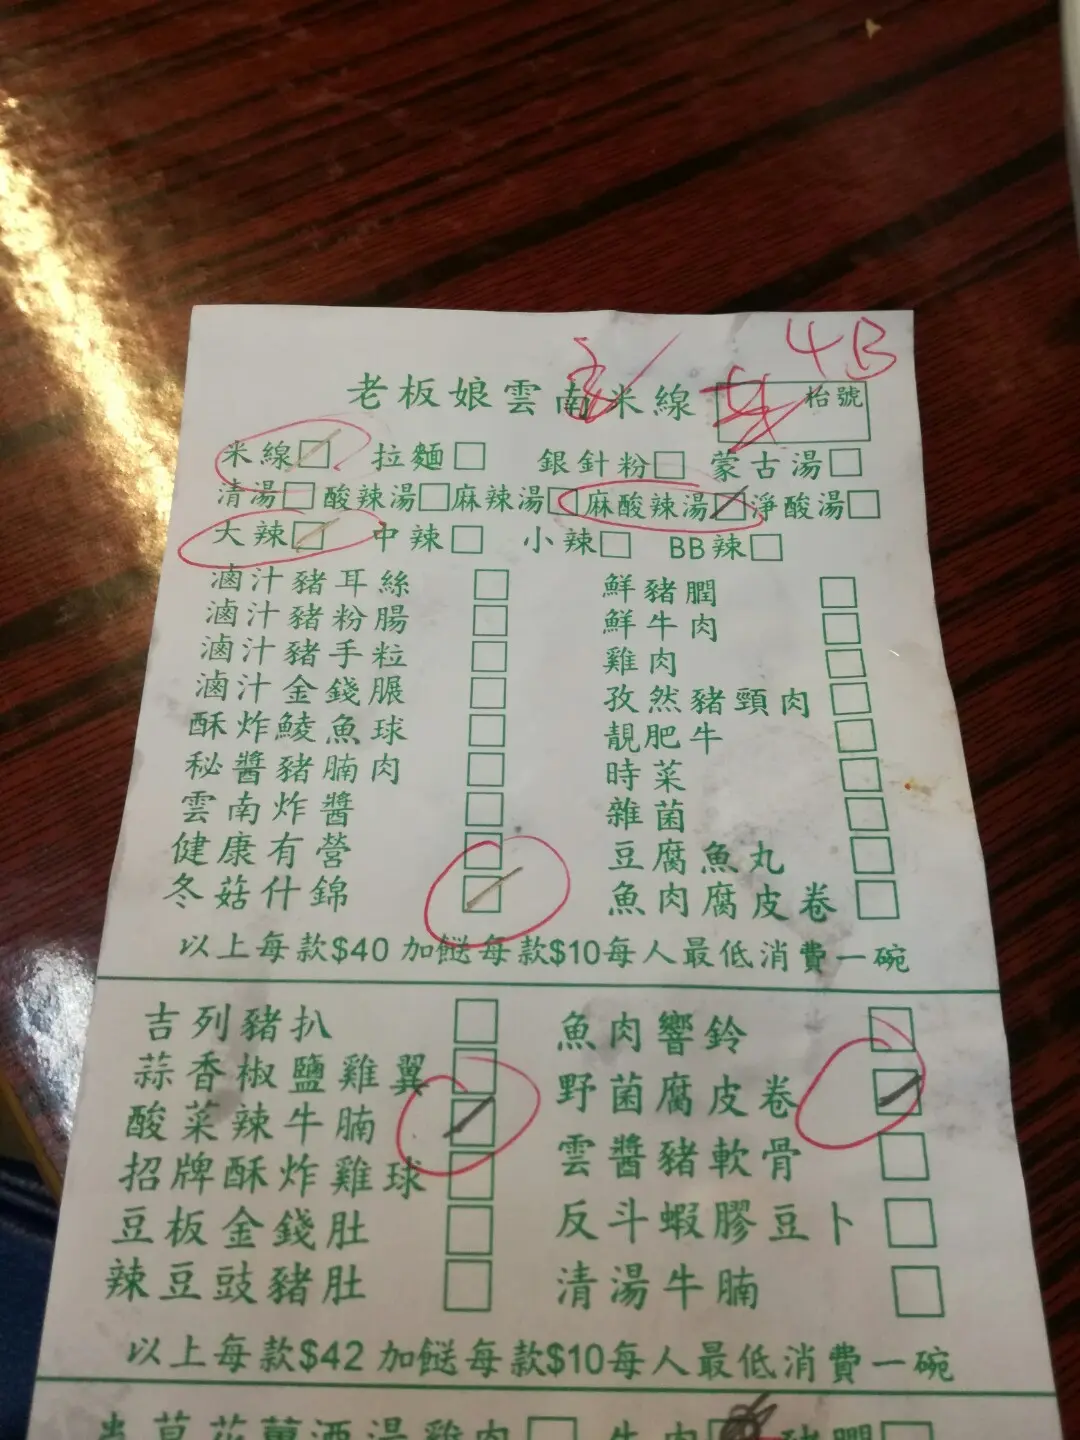 4B
老板娘雲南米線 枱號
米線 拉麵 銀針粉 蒙古湯
清湯 酸辣湯 麻辣湯 麻酸辣湯 淨酸湯
大辣 中辣 小辣 BB辣
滷汁豬耳絲 鮮豬膶
滷汁豬粉腸 鮮牛肉
滷汁豬手粒 雞肉
滷汁金錢𦟌 孜然豬頸肉
酥炸鯪魚球 靚肥牛
秘醬豬腩肉 時菜
雲南炸醬 雜菌
健康有營 豆腐魚丸
冬菇什錦 魚肉腐皮卷
以上每款$40 加餸每款$10每人最低消費一碗
吉列豬扒 魚肉響鈴
蒜香椒鹽雞翼 野菌腐皮卷
酸菜辣牛腩 雲醬豬軟骨
招牌酥炸雞球 反斗蝦膠豆卜
豆板金錢肚 清湯牛腩
辣豆豉豬肚
以上每款$42 加餸每款$10每人最低消費一碗
草花 酒湯雞肉 牛肉 豬膶